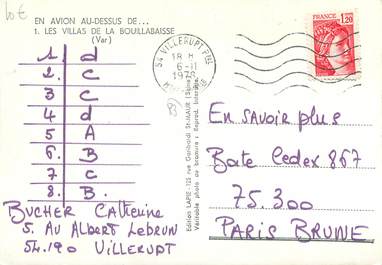 10 €
EN AVION AU-DESSUS DE...
1. LES VILLAS DE LA BOUILLABAISSE
(Var)
1. d
2. C
3 C
4 d
5 A
6. B
7 C
8. B.
BUCHER Catherine
5. Au ALBERT LEBRUN
54.190 VILLERUPT
54 VILLERUPT PPAL
18 H
6-11
FRANCE
1,20
Edition LAPIE - 125 rue Garibaldi St-MAUR (Seine)
Véritable photo au bromure : Reprod. Interdite.
EN SAVOIR plus
Boite Cedex 867
75.300
PARIS BRUNE